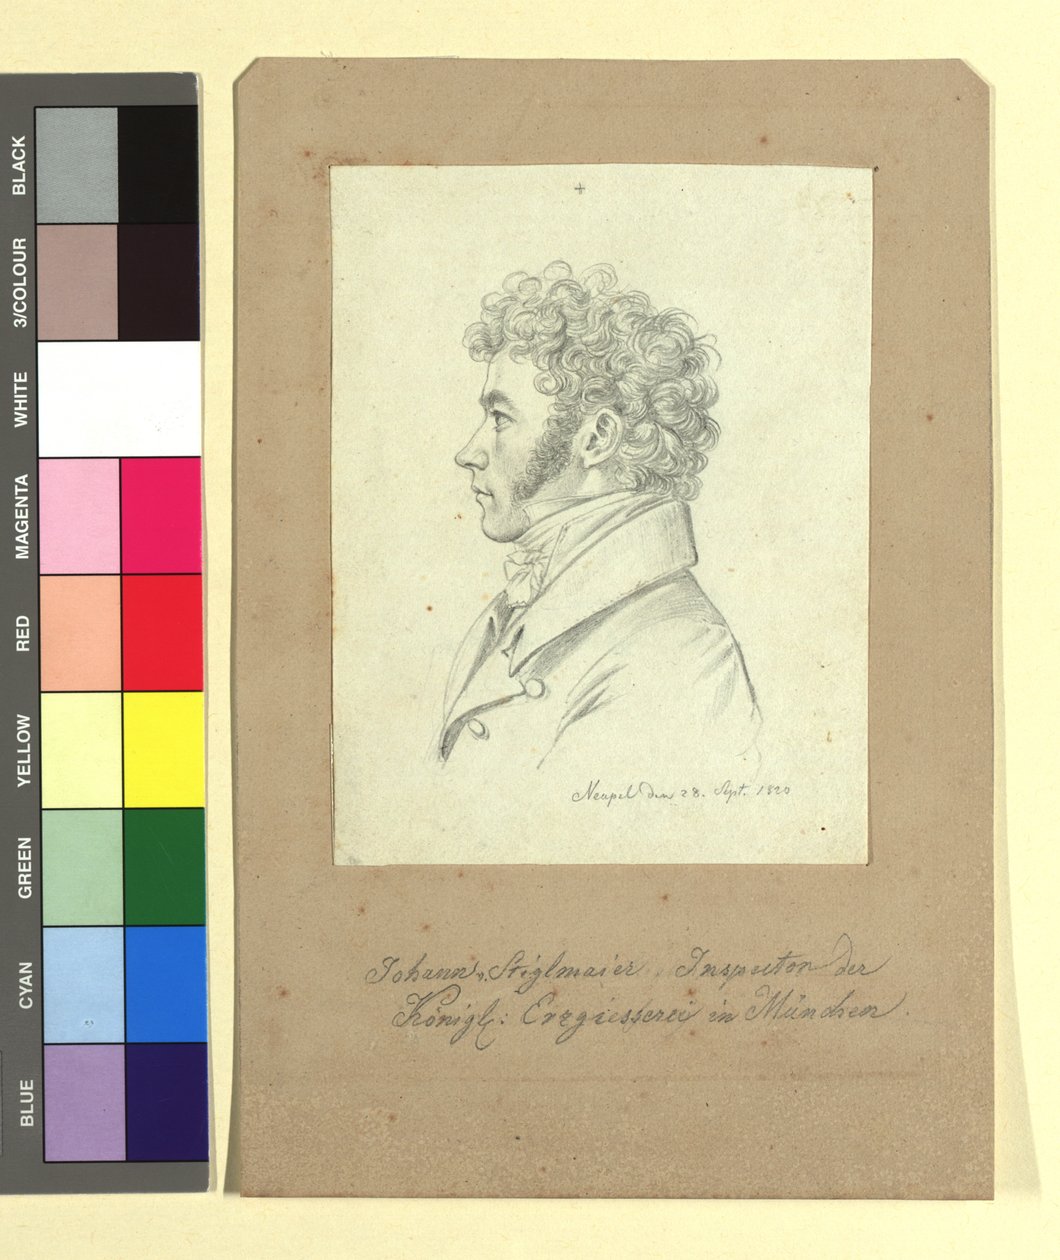 BLACK
3/COLOUR
WHITE
MAGENTA
RED
YELLOW
GREEN
CYAN
BLUE
Neapel den 28. Sept. 1820
Johann v. Stiglmaier Inspector der
Königl: Erzgiesserei in München.